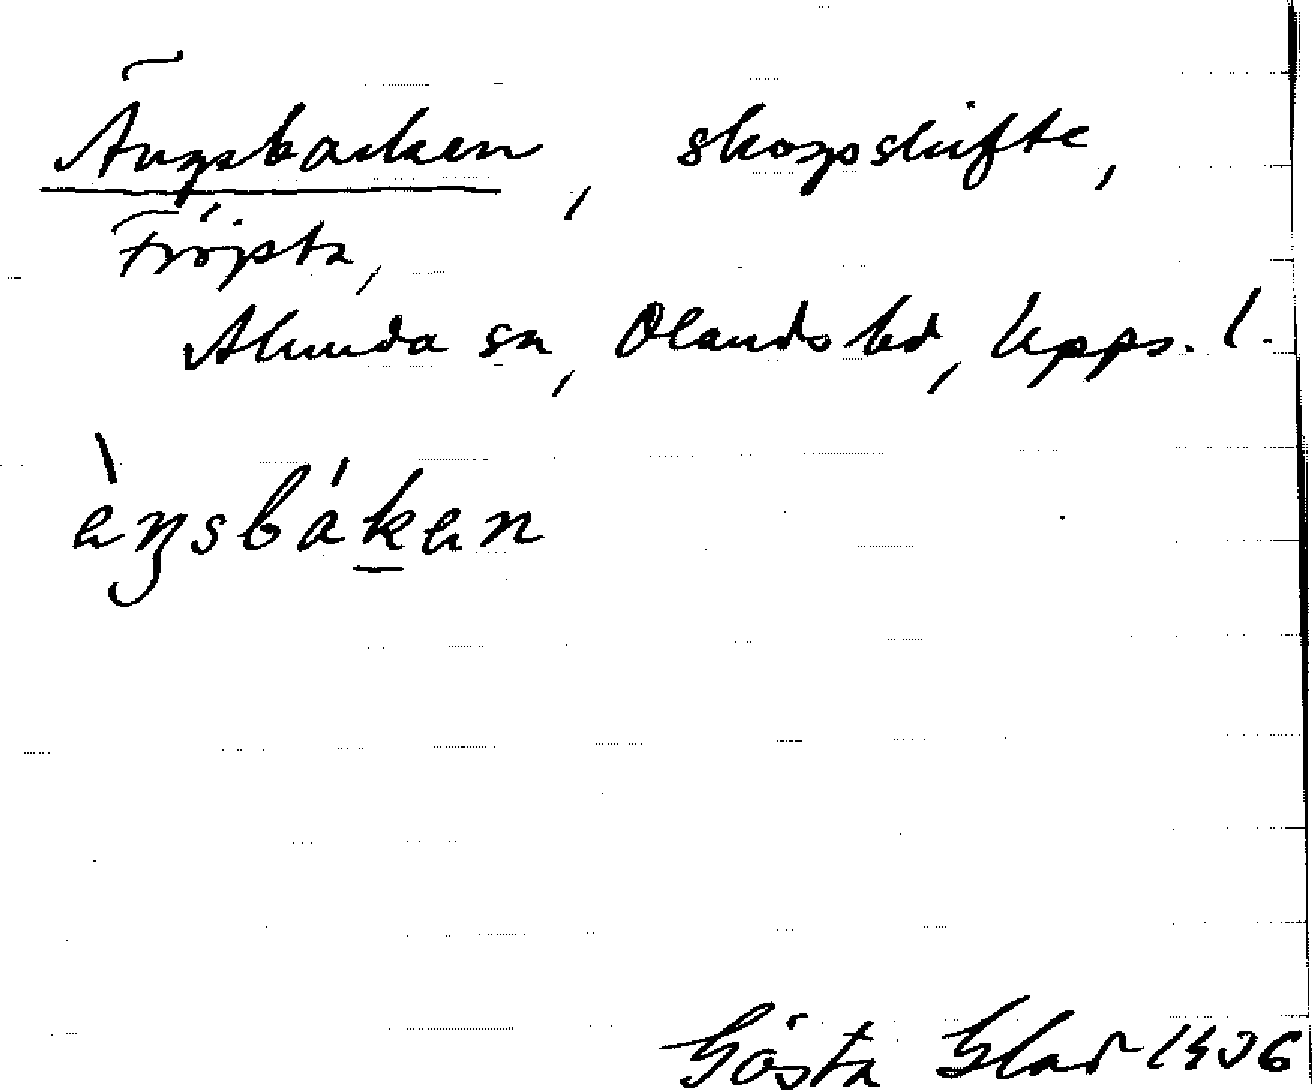 Ängsbacken, skogsskifte,
Fröpsta,
Alunda sn, Olands hd, Upps. l.
èŋsbákan
Gösta Glad 1936